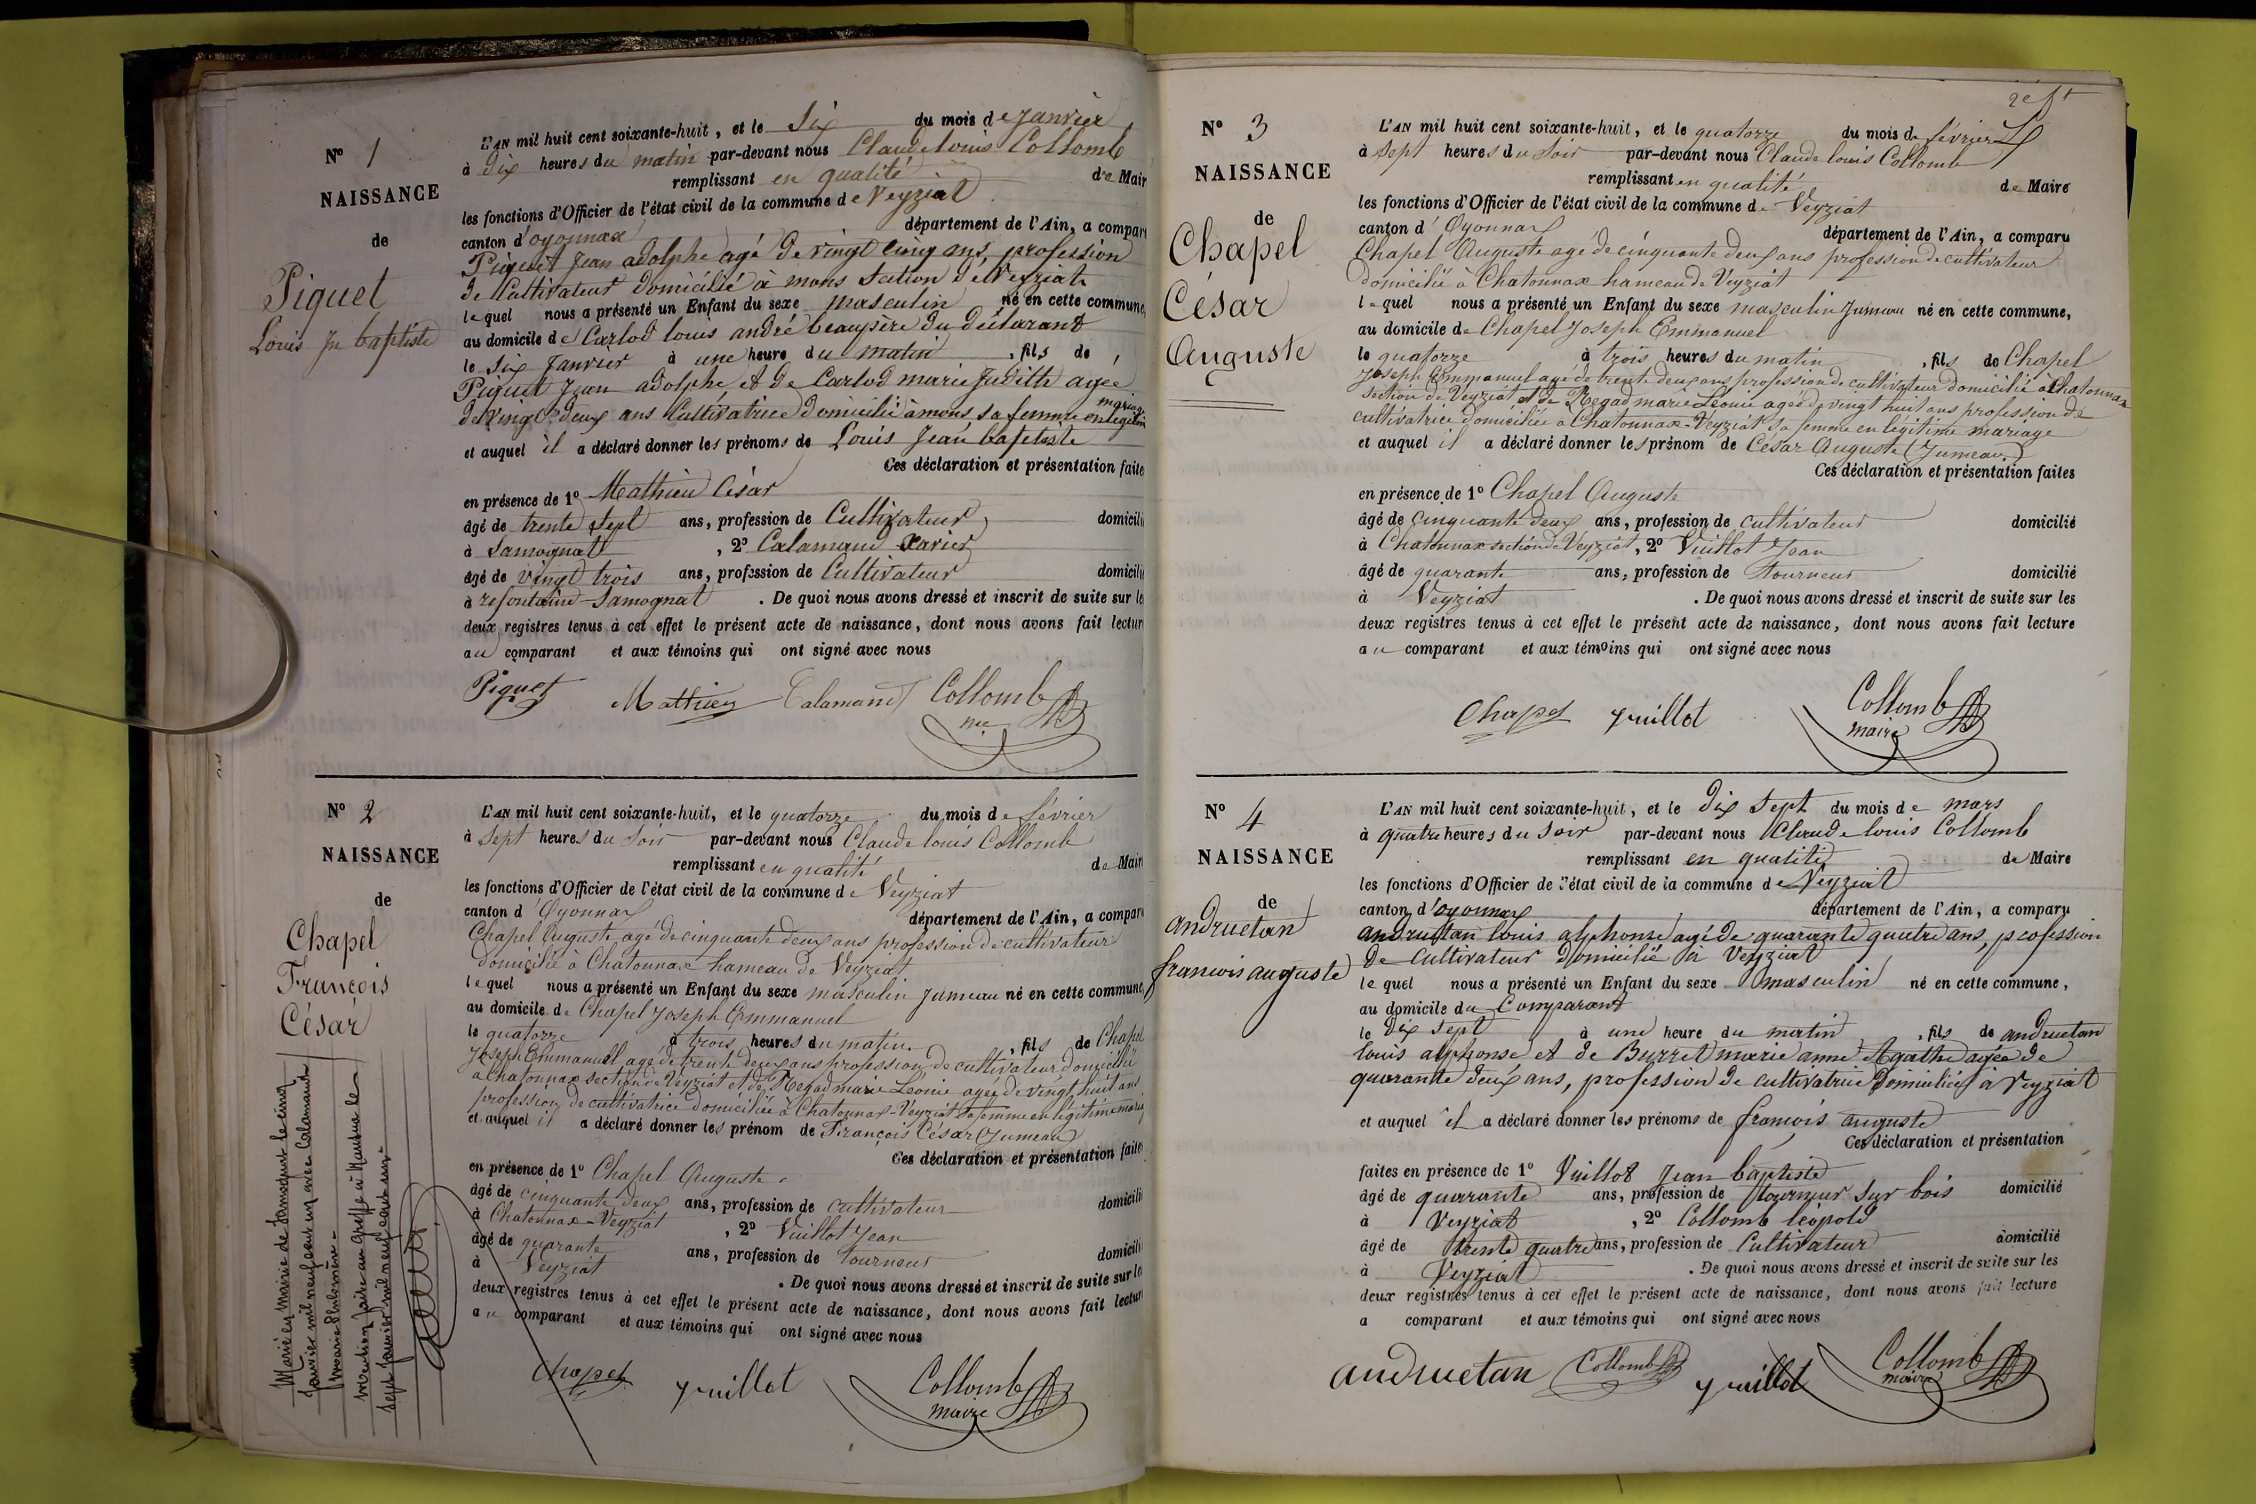 N° 1
NAISSANCE
de
Piquet
Louis Jn baptiste
L'AN mil huit cent soixante-huit, et le Six du mois de Janvier
à dix heures du matin par-devant nous Claude louis Collomb
remplissant en qualité de Mair
les fonctions d'Officier de l'état civil de la commune de Veyziat
canton d'oyonnax département de l'Ain, a comparu
Piquet Jean adolphe agé de vingt cinq ans, profession
de Cultivateur domicilié à mons section de Veyziat
lequel nous a présenté un Enfant du sexe masculin né en cette commune,
au domicile de Carlod louis andré beaupère du déclarant
le Six Janvier à une heure du matin, fils de
Piquet Jean adolphe et de Carlod marie Judith agée
de vingt deux ans Cultivatrice domicilié à mons, sa femme en légitime mariage
et auquel il a déclaré donner les prénoms de Louis Jean baptiste
Ces déclaration et présentation faites
en présence de 1° Mathieu César
âgé de trente sept ans, profession de Cultivateur domicilié
à Samognat, 2° Calamand Xavier
âgé de vingt trois ans, profession de Cultivateur domicilié
à refontaine Samognat. De quoi nous avons dressé et inscrit de suite sur les
deux registres tenus à cet effet le présent acte de naissance, dont nous avons fait lecture
au comparant et aux témoins qui ont signé avec nous
Piquet Mathieu Calamand Collomb
me
N° 2
NAISSANCE
de
Chapel
François
César
Marié en mairie de Samognat le cinq
Janvier mil neuf cent un avec Calamand
Marie Philomène.
mention faite au greffe à Nantua le
sept Janvier mil neuf cent un.
L'AN mil huit cent soixante-huit, et le quatorze du mois de février
à sept heures du soir par-devant nous Claude louis Collomb
remplissant en qualité de Maire
les fonctions d'Officier de l'état civil de la commune de Veyziat
canton d'Oyonnax département de l'Ain, a comparu
Chapel Auguste agé de cinquante deux ans profession de cultivateur
domicilié à Chatonnax hameau de Veyziat
lequel nous a présenté un Enfant du sexe masculin Jumeau né en cette commune,
au domicile de Chapel Joseph Emmanuel
le quatorze à trois heures du matin, fils de Chapel
Joseph Emmanuel agé de trente deux ans profession de cultivateur domicilié
à Chatonnax section de Veyziat et de Regad marie Leonie agée de vingt huit ans
profession de cultivatrice domiciliée à Chatonnax-Veyziat sa femme en légitime mariag
et auquel il a déclaré donner les prénom de François César (Jumeau)
Ces déclaration et présentation faites
en présence de 1° Chapel Auguste
âgé de cinquante deux ans, profession de cultivateur domicilié
à Chatonnax-Veyziat, 2° Vuillot Jean
âgé de quarante ans, profession de tourneur domicilié
à Veyziat. De quoi nous avons dressé et inscrit de suite sur les
deux registres tenus à cet effet le présent acte de naissance, dont nous avons fait lecture
au comparant et aux témoins qui ont signé avec nous
Chapel Vuillot Collomb
maire
2e ft
N° 3
NAISSANCE
de
Chapel
César
Auguste
L'AN mil huit cent soixante-huit, et le quatorze du mois de février
à sept heures du soir par-devant nous Claude louis Collomb
remplissant en qualité de Maire
les fonctions d'Officier de l'état civil de la commune de Veyziat
canton d'Oyonnax département de l'Ain, a comparu
Chapel Auguste agé de cinquante deux ans profession de cultivateur
domicilié à Chatonnax hameau de Veyziat
lequel nous a présenté un Enfant du sexe masculin Jumeau né en cette commune,
au domicile de Chapel Joseph Emmanuel
le quatorze à trois heures du matin, fils de Chapel
Joseph Emmanuel agé de trente deux ans profession de cultivateur domicilié à Chatonnax
section de Veyziat et de Regad marie Leonie agée de vingt huit ans profession de
cultivatrice domiciliée à Chatonnax-Veyziat sa femme en légitime mariage
et auquel il a déclaré donner les prénom de César Auguste (Jumeau)
Ces déclaration et présentation faites
en présence de 1° Chapel Auguste
âgé de cinquante deux ans, profession de cultivateur domicilié
à Chatonnax section de Veyziat, 2° Vuillot Jean
âgé de quarante ans, profession de tourneur domicilié
à Veyziat. De quoi nous avons dressé et inscrit de suite sur les
deux registres tenus à cet effet le présent acte de naissance, dont nous avons fait lecture
au comparant et aux témoins qui ont signé avec nous
Chapel Vuillot Collomb
maire
N° 4
NAISSANCE
de
andruetan
francois auguste
L'AN mil huit cent soixante-huit, et le dix sept du mois de mars
à quatre heures du soir par-devant nous Claude louis Collomb
remplissant en qualité de Maire
les fonctions d'Officier de l'état civil de la commune de Veyziat
canton d'oyonnax département de l'Ain, a comparu
andruetan louis alphonse agé de quarante quatre ans, profession
de cultivateur domicilié à Veyziat
lequel nous a présenté un Enfant du sexe masculin né en cette commune,
au domicile du Comparant
le dix sept à une heure du matin, fils de andruetan
louis alphonse et de Burret marie anne Agathe agée de
quarante deux ans, profession de cultivatrice domiciliée à Veyziat
et auquel il a déclaré donner les prénoms de françois auguste
Ces déclaration et présentation
faites en présence de 1° Vuillot Jean baptiste
âgé de quarante ans, profession de tourneur sur bois domicilié
à Veyziat, 2° Collomb léopold
âgé de trente quatre ans, profession de Cultivateur domicilié
à Veyziat. De quoi nous avons dressé et inscrit de suite sur les
deux registres tenus à cet effet le présent acte de naissance, dont nous avons fait lecture
a comparant et aux témoins qui ont signé avec nous
andruetan Collomb Vuillot Collomb
maire